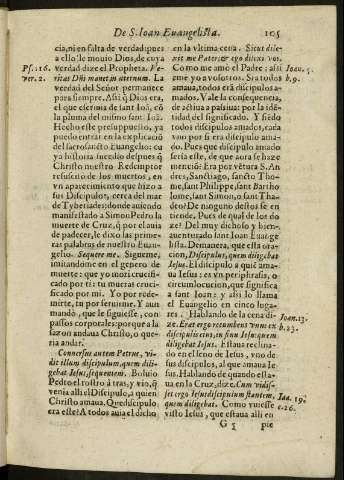 De S. Ioan Euangelista. 105
cia, ni en falta de verdad: pues
a ello le mouio Dios, de cuya
Ps. 116. verdad dize el Propheta. Ve-
ver. 2. ritas Dñi manet in æternum. La
verdad del Señor permanece
para siempre. Assi q̃ Dios era,
el que escriuia Sant Ioã, cõ
la pluma del mismo sant Ioã.
Hecho este presupuesto, ya
puedo entrar en la explicaciõ
del sacrosancto Euangelio: cu
ya historia sucedio despues q̃
Christo nuestro Redemptor
resuscito de los muertos, en
vn aparecimiento que hizo a
sus Discipulos, cerca del mar
de Tyberiades: donde auiendo
manifestado a Simon Pedro la
muerte de Cruz, q̃ por el auia
de padecer, le dixo las prime-
ras palabras de nuestro Euan-
gelio. Sequere me. Sigueme,
imitandome en el genero de
muerte: que yo mori crucifi-
cado por ti: tu muere cruci-
ficado por mi. Yo por rede-
mirte, tu por seruirme. Y aun
mando, que le siguiesse, con
passos corporales: porque a la
sazon andaua Christo, o que-
ria andar.
Conuersus autem Petrus, vi-
dit illum discipulum, quem dili-
gebat Iesus, sequentem. Boluio
Pedro el rostro à tras, y vio, q̃
venia alli el Discipulo, a quien
Christo amaua. Que discipulo
era este? A todos auia el dicho
en la vltima cena. Sicut dile-
xit me Pater: & ego dilexi vos.
Como me amò el Padre: assi Ioan.
ame yo a vosotros. Si a todos b. 9.
amaua, todos erã discipulos a-
mados. Vale la consequencia,
de actiua a passiua: por la idẽ-
tidad del significado. Y si son
todos discipulos amados, cada
vno por si era discipulo ama-
do. Pues que discipulo amado
seria este, de que aora se haze
mencion? Era por vẽtura S. An
dres, Sanctiago, sancto Tho-
me, sant Philippe, sant Bartho
lome, sant Simon, o sant Tha-
deo? De ninguno destos se en
tiende. Pues de qual de los do
ze? Del muy dichoso y bien-
auenturado sant Ioan Euãge-
lista. De manera, que esta ora-
cion, Discipulus, quem diligebat
Iesus. El discipulo a quiẽ ama-
ua Iesus: es vn periphrasis, o
circumlocucion, que significa
a sant Ioan: y assi lo llama
el Euangelio en cinco luga-
res. Hablando de la cena di- Ioan. 13.
ze. Erat ergo recumbens vnus ex b. 23.
discipulis eius, in sinu Iesu: quem
diligebat Iesus. Estaua reclina-
do en el seno de Iesus, vno de
sus discipulos, al que amaua Ie
sus. Hablando de quando esta-
ua en la Cruz, dize. Cum vidis-
set ergo Iesus discipulum stantem, Ioa. 19.
quem diligebat. Como vuiesse c. 26.
visto Iesus, que estaua alli en
G 5 pie